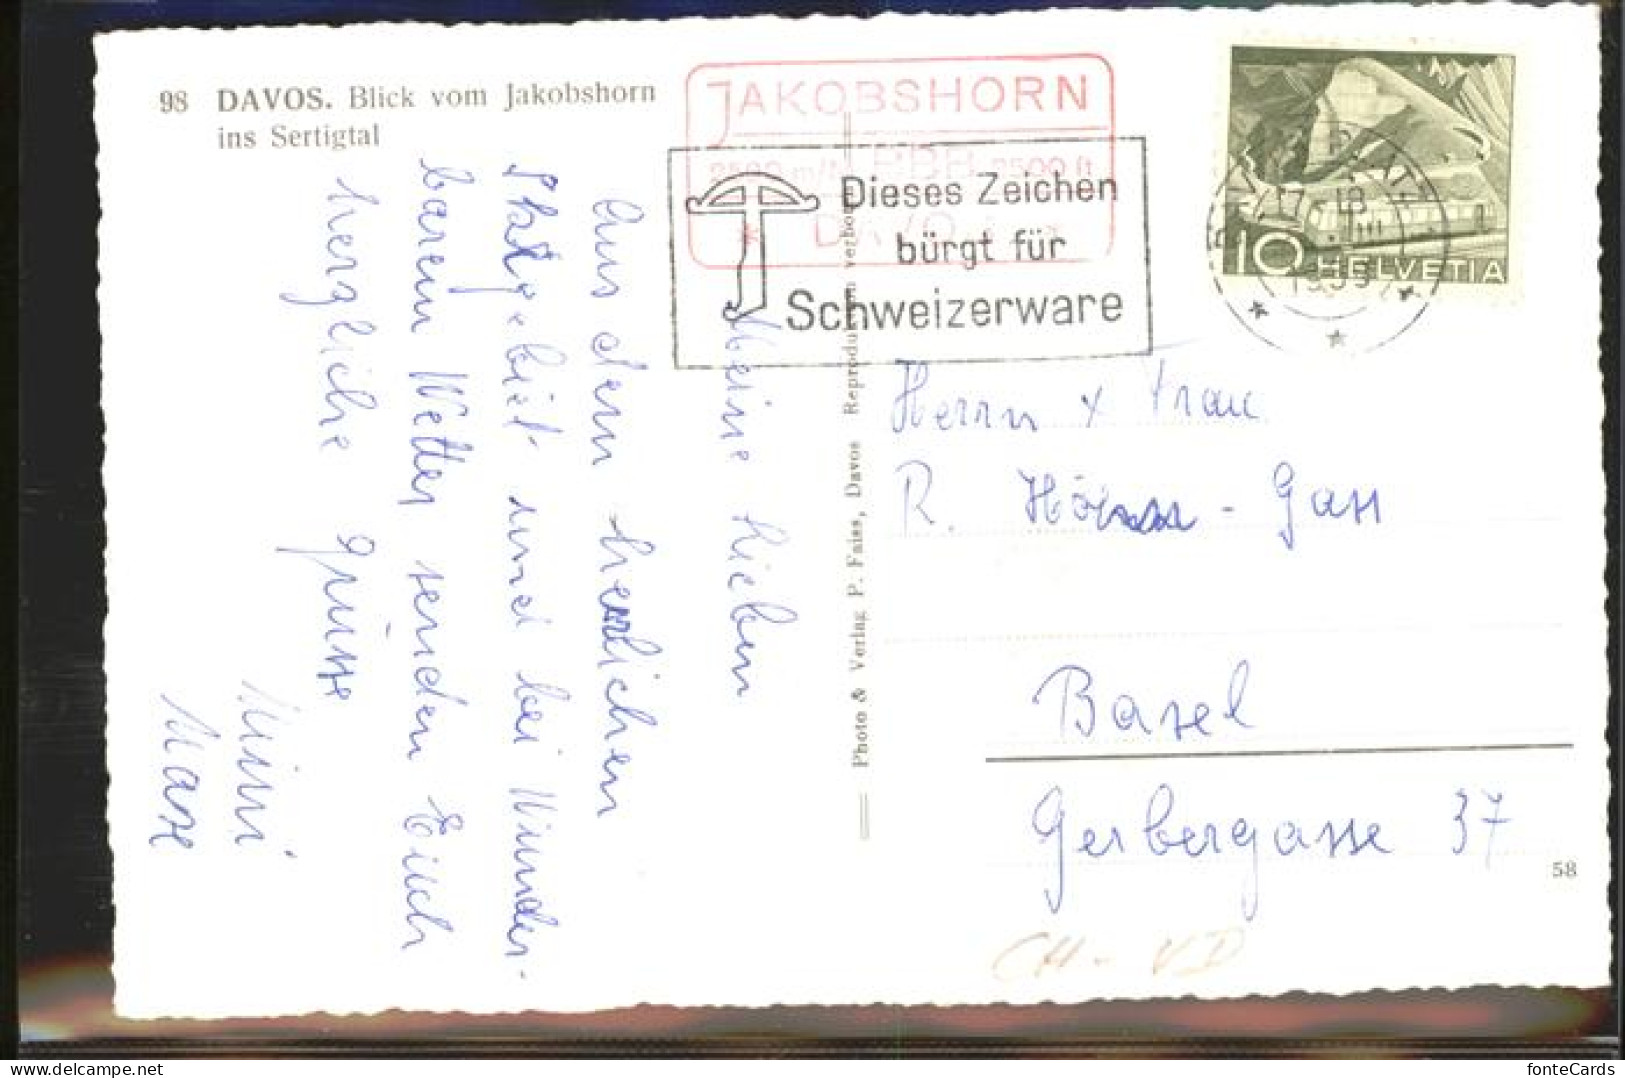 98 DAVOS. Blick vom Jakobshorn
ins Sertigtal
JAKOBSHORN
2590 m/M BBB 8500 ft
DAVOS
Dieses Zeichen
bürgt für
Schweizerware
17.-18
III
10 HELVETIA
Meine Lieben
Aus dem herrlichen
bei Wunder-
barem Wetter senden Euch
herzliche Grüsse
Mimi
Max
Photo & Verlag P. Faiss, Davos Reproduktion verboten
Herrn & Frau
R. - Gass
Basel
Gerbergasse 37
58
CH - VD
fonteCards